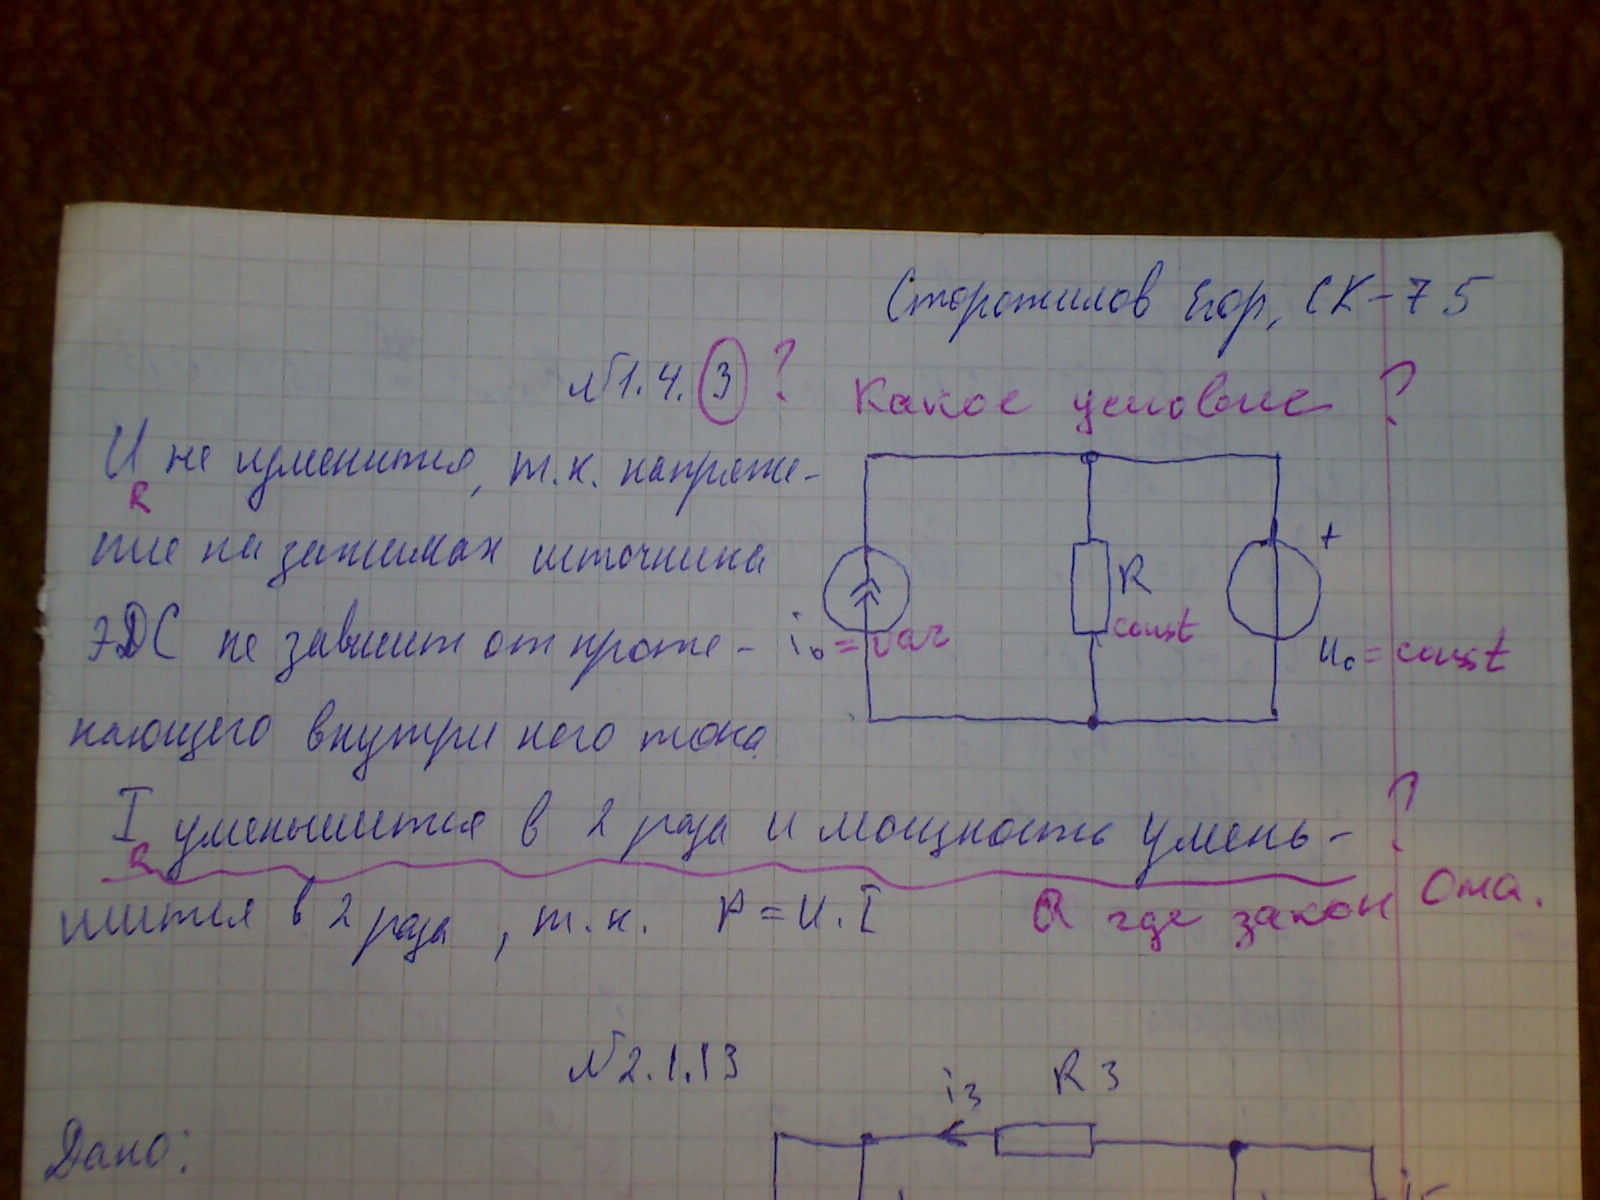 Сторожилов Егор, СК-75
№1.4.3 ? Какое условие ?
U R не изменится, т.к. напряже-
ние на зажимах источника
ЭДС не зависит от проте-
кающего внутри него тока
R
const
+
i₀ = var
u₀ = const
I R уменьшится в 2 раза и мощность умень- ?
шится в 2 раза, т.к. P = U·I
А где закон Ома.
№2.1.13
i3 R3
Дано: